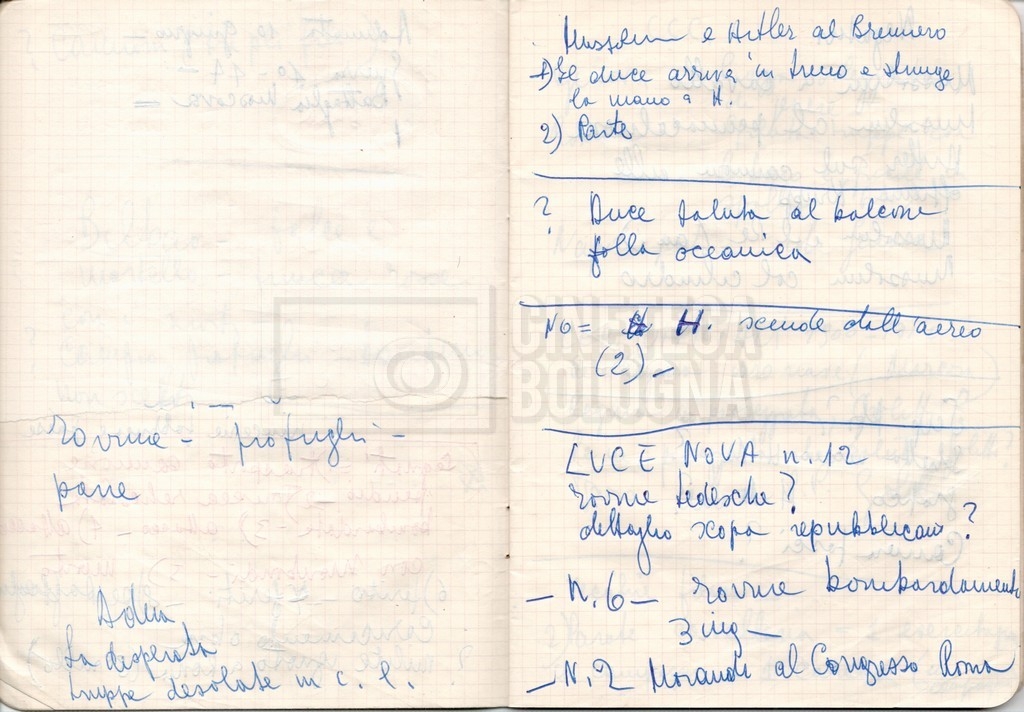 rovine - profughi -
pane
Adua
La disperata
truppe desolate in c. l.
Mussolini e Hitler al Brennero
1) Il duce arriva in treno e stringe
la mano a H.
2) Parte
? Duce saluta al balcone
folla oceanica
No = H. scende dall'aereo
(2) -
CINETECA
BOLOGNA
LUCE NOVA n. 12
rovine tedesche?
dettaglio scopa repubblicani?
- N. 6 - rovine bombardamento
3 inq -
- N. 2 Morandi al Congresso Roma